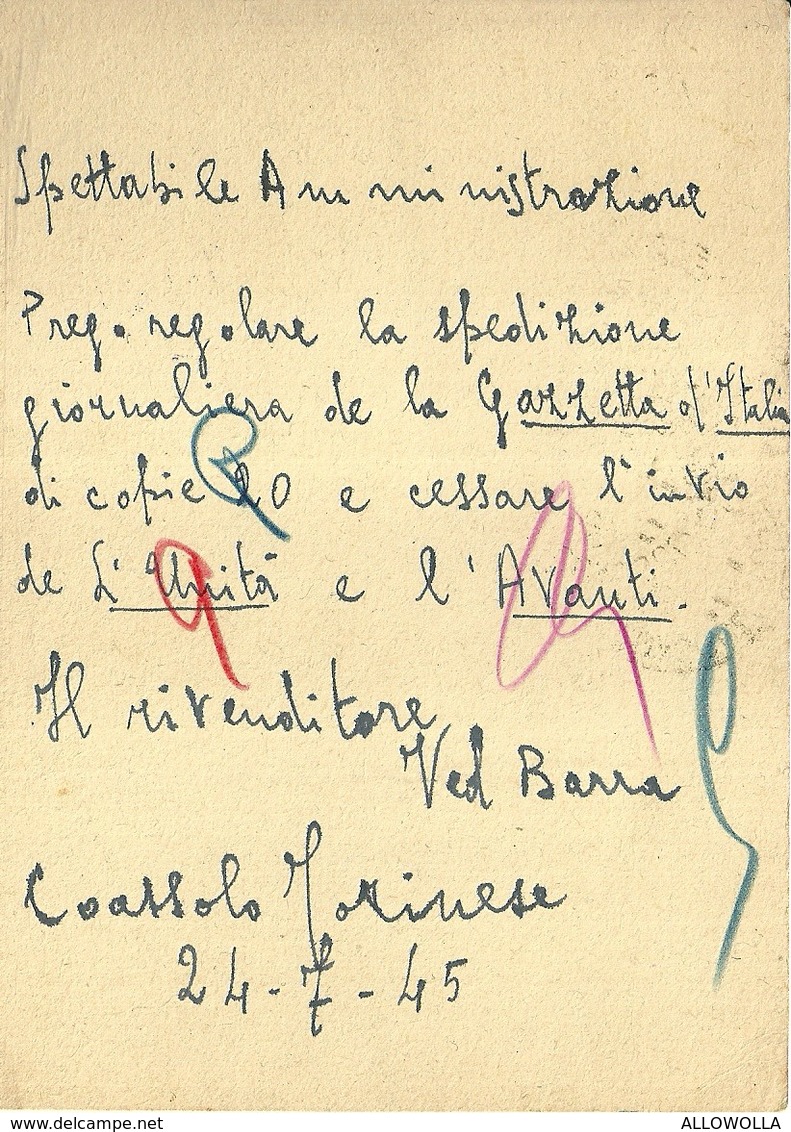 Spettabile Amministrazione
Preg. regolare la spedizione
giornaliera de la Gazzetta d'Italia
di copie 20 e cessare l'invio
de L'Unità e l'Avanti.
Il rivenditore
Ved Barra
Coassolo Torinese
24-7-45
www.delcampe.net
ALLOWOLLA